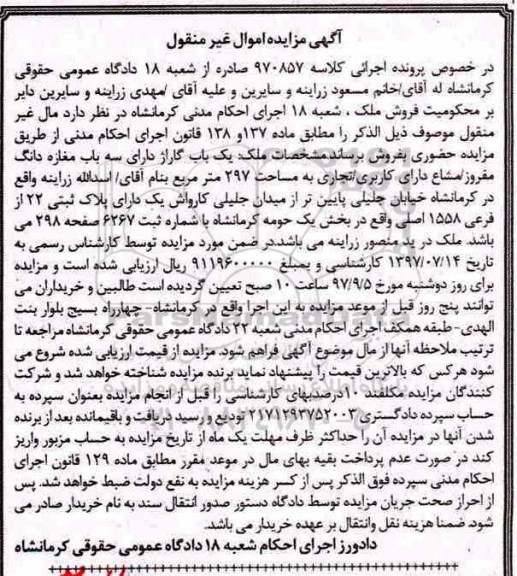 آگهی مزایده اموال غیر منقول
در خصوص پرونده اجرائی کلاسه ۹۷۰۸۵۷ صادره از شعبه ۱۸ دادگاه عمومی حقوقی
کرمانشاه له آقای/خانم مسعود زراینه و سایرین و علیه آقای /مهدی زراینه و سایرین دایر
بر محکومیت فروش ملک ، شعبه ۱۸ اجرای احکام مدنی کرمانشاه در نظر دارد مال غیر
منقول موصوف ذیل الذکر را مطابق ماده ۱۳۷و ۱۳۸ قانون اجرای احکام مدنی از طریق
مزایده حضوری بفروش برساند.مشخصات ملک: یک باب گاراژ دارای سه باب مغازه دانگ
مفروز/مشاع دارای کاربری/تجاری به مساحت ۲۹۷ متر مربع بنام آقای/ اسدالله زراینه واقع
در کرمانشاه خیابان جلیلی پایین تر از میدان جلیلی کارواش یک دارای پلاک ثبتی ۲۲ از
فرعی ۱۵۵۸ اصلی واقع در بخش یک حومه کرمانشاه با شماره ثبت ۶۲۶۷ صفحه ۲۹۸ می
باشد. ملک در ید منصور زراینه می باشد.در ضمن مورد مزایده توسط کارشناس رسمی به
تاریخ ۱۳۹۷/۰۷/۱۴ کارشناسی و بمبلغ ۹۱۱۹۶۰۰۰۰۰ ریال ارزیابی شده است و مزایده
برای روز دوشنبه مورخ ۹۷/۹/۵ ساعت ۱۰ صبح تعیین گردیده است طالبین و خریداران می
توانند پنج روز قبل از موعد مزایده به این اجرا واقع در کرمانشاه- چهارراه بسیج بلوار بنت
الهدی- طبقه همکف اجرای احکام مدنی شعبه ۲۲ دادگاه عمومی حقوقی کرمانشاه مراجعه تا
ترتیب ملاحظه آنها از مال موضوع آگهی فراهم شود. مزایده از قیمت ارزیابی شده شروع می
شود هرکس که بالاترین قیمت را پیشنهاد نماید برنده مزایده شناخته خواهد شد و شرکت
کنندگان مزایده مکلفند ۱۰درصدبهای کارشناسی را قبل از انجام مزایده بعنوان سپرده به
حساب سپرده دادگستری ۲۱۷۱۲۹۳۷۵۲۰۰۲ تودیع و رسید دریافت و باقیمانده بعد از برنده
شدن آنها در مزایده آن را حداکثر ظرف مهلت یک ماه از تاریخ مزایده به حساب مزبور واریز
کند در صورت عدم پرداخت بقیه بهای مال در موعد مقرر مطابق ماده ۱۲۹ قانون اجرای
احکام مدنی سپرده فوق الذکر پس از کسر هزینه مزایده به نفع دولت ضبط خواهد شد. پس
از احراز صحت جریان مزایده توسط دادگاه دستور صدور انتقال سند به نام خریدار صادر می
شود. ضمنا هزینه نقل وانتقال بر عهده خریدار می باشد.
دادورز اجرای احکام شعبه ۱۸ دادگاه عمومی حقوقی کرمانشاه